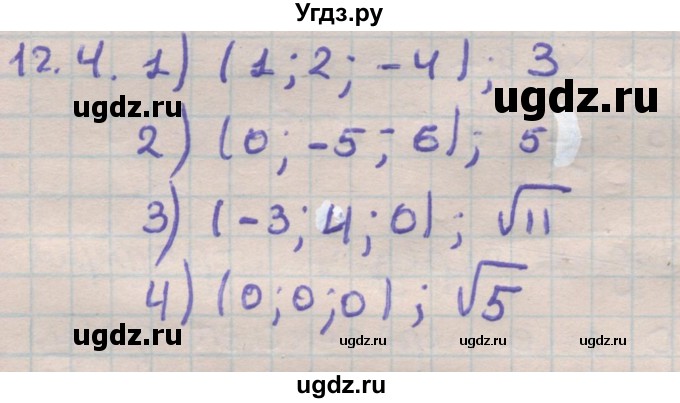 Угдз.ру
12.4. 1) (1; 2; -4); 3
ugdz.ru ugdz.ru
2) (0; -5; 6); 5
3) (-3; 4; 0); √11
4) (0; 0; 0); √5
ugdz.ru ugdz.ru ugdz.ru
ugdz.ru